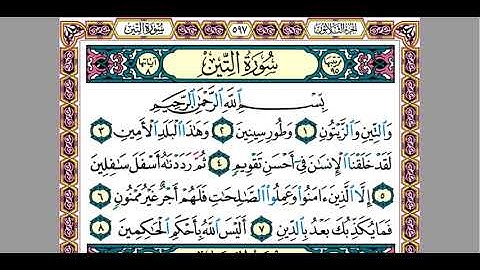 سُورَةُ التِّينِ ٥٩٧ الجزء الثلاثون
ترتيبها ٩٥ سُورَةُ التِّينِ آياتها ٨
بِسْمِ اللَّهِ الرَّحْمَٰنِ الرَّحِيمِ
وَالتِّينِ وَالزَّيْتُونِ ١ وَطُورِ سِينِينَ ٢ وَهَٰذَا الْبَلَدِ الْأَمِينِ ٣
لَقَدْ خَلَقْنَا الْإِنسَانَ فِي أَحْسَنِ تَقْوِيمٍ ٤ ثُمَّ رَدَدْنَاهُ أَسْفَلَ سَافِلِينَ
٥ إِلَّا الَّذِينَ ءَامَنُوا وَعَمِلُوا الصَّالِحَاتِ فَلَهُمْ أَجْرٌ غَيْرُ مَمْنُونٍ ٦
فَمَا يُكَذِّبُكَ بَعْدُ بِالدِّينِ ٧ أَلَيْسَ اللَّهُ بِأَحْكَمِ الْحَاكِمِينَ ٨